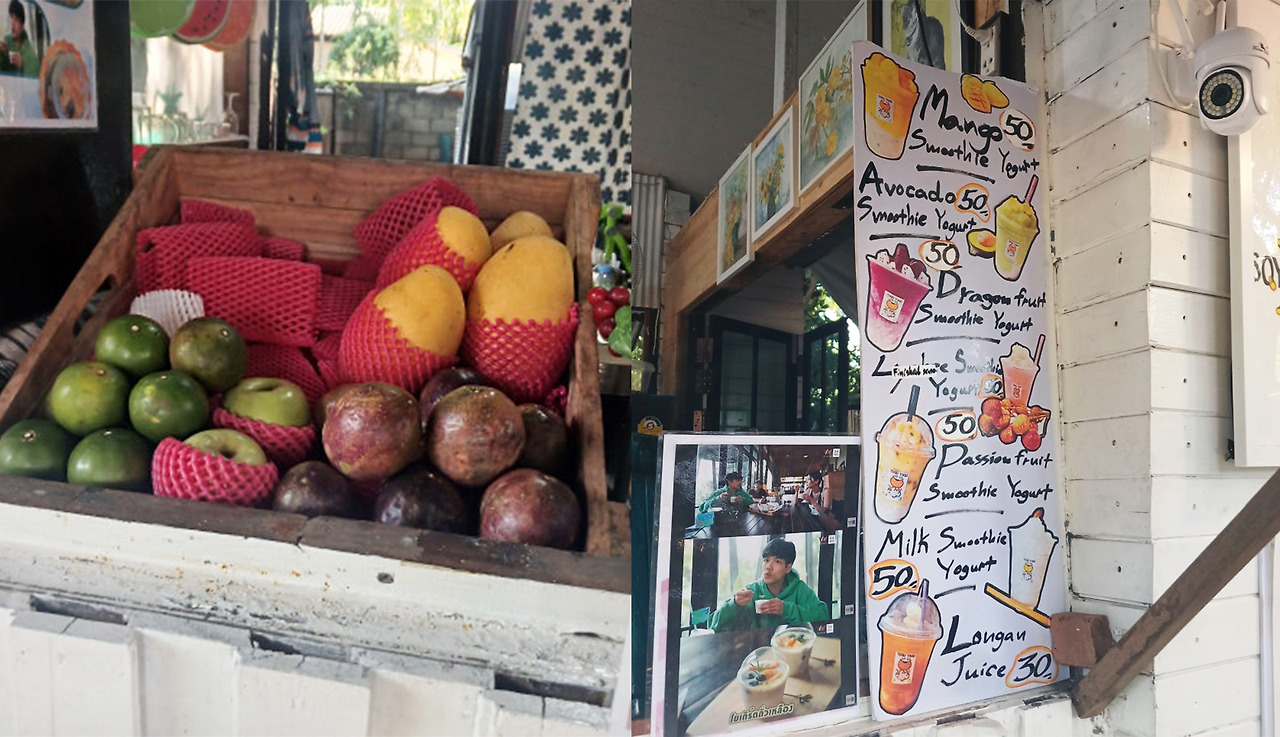 Mango 50
Smoothie Yogurt
Avocado 50
Smoothie Yogurt
50
Dragon fruit
Smoothie Yogurt
Finished soon
Smoothie
Yogurt 50
50
Passion fruit
Smoothie Yogurt
Milk Smoothie
Yogurt
50
Longan
Juice 30
โยเกิร์ตถั่วเหลือง